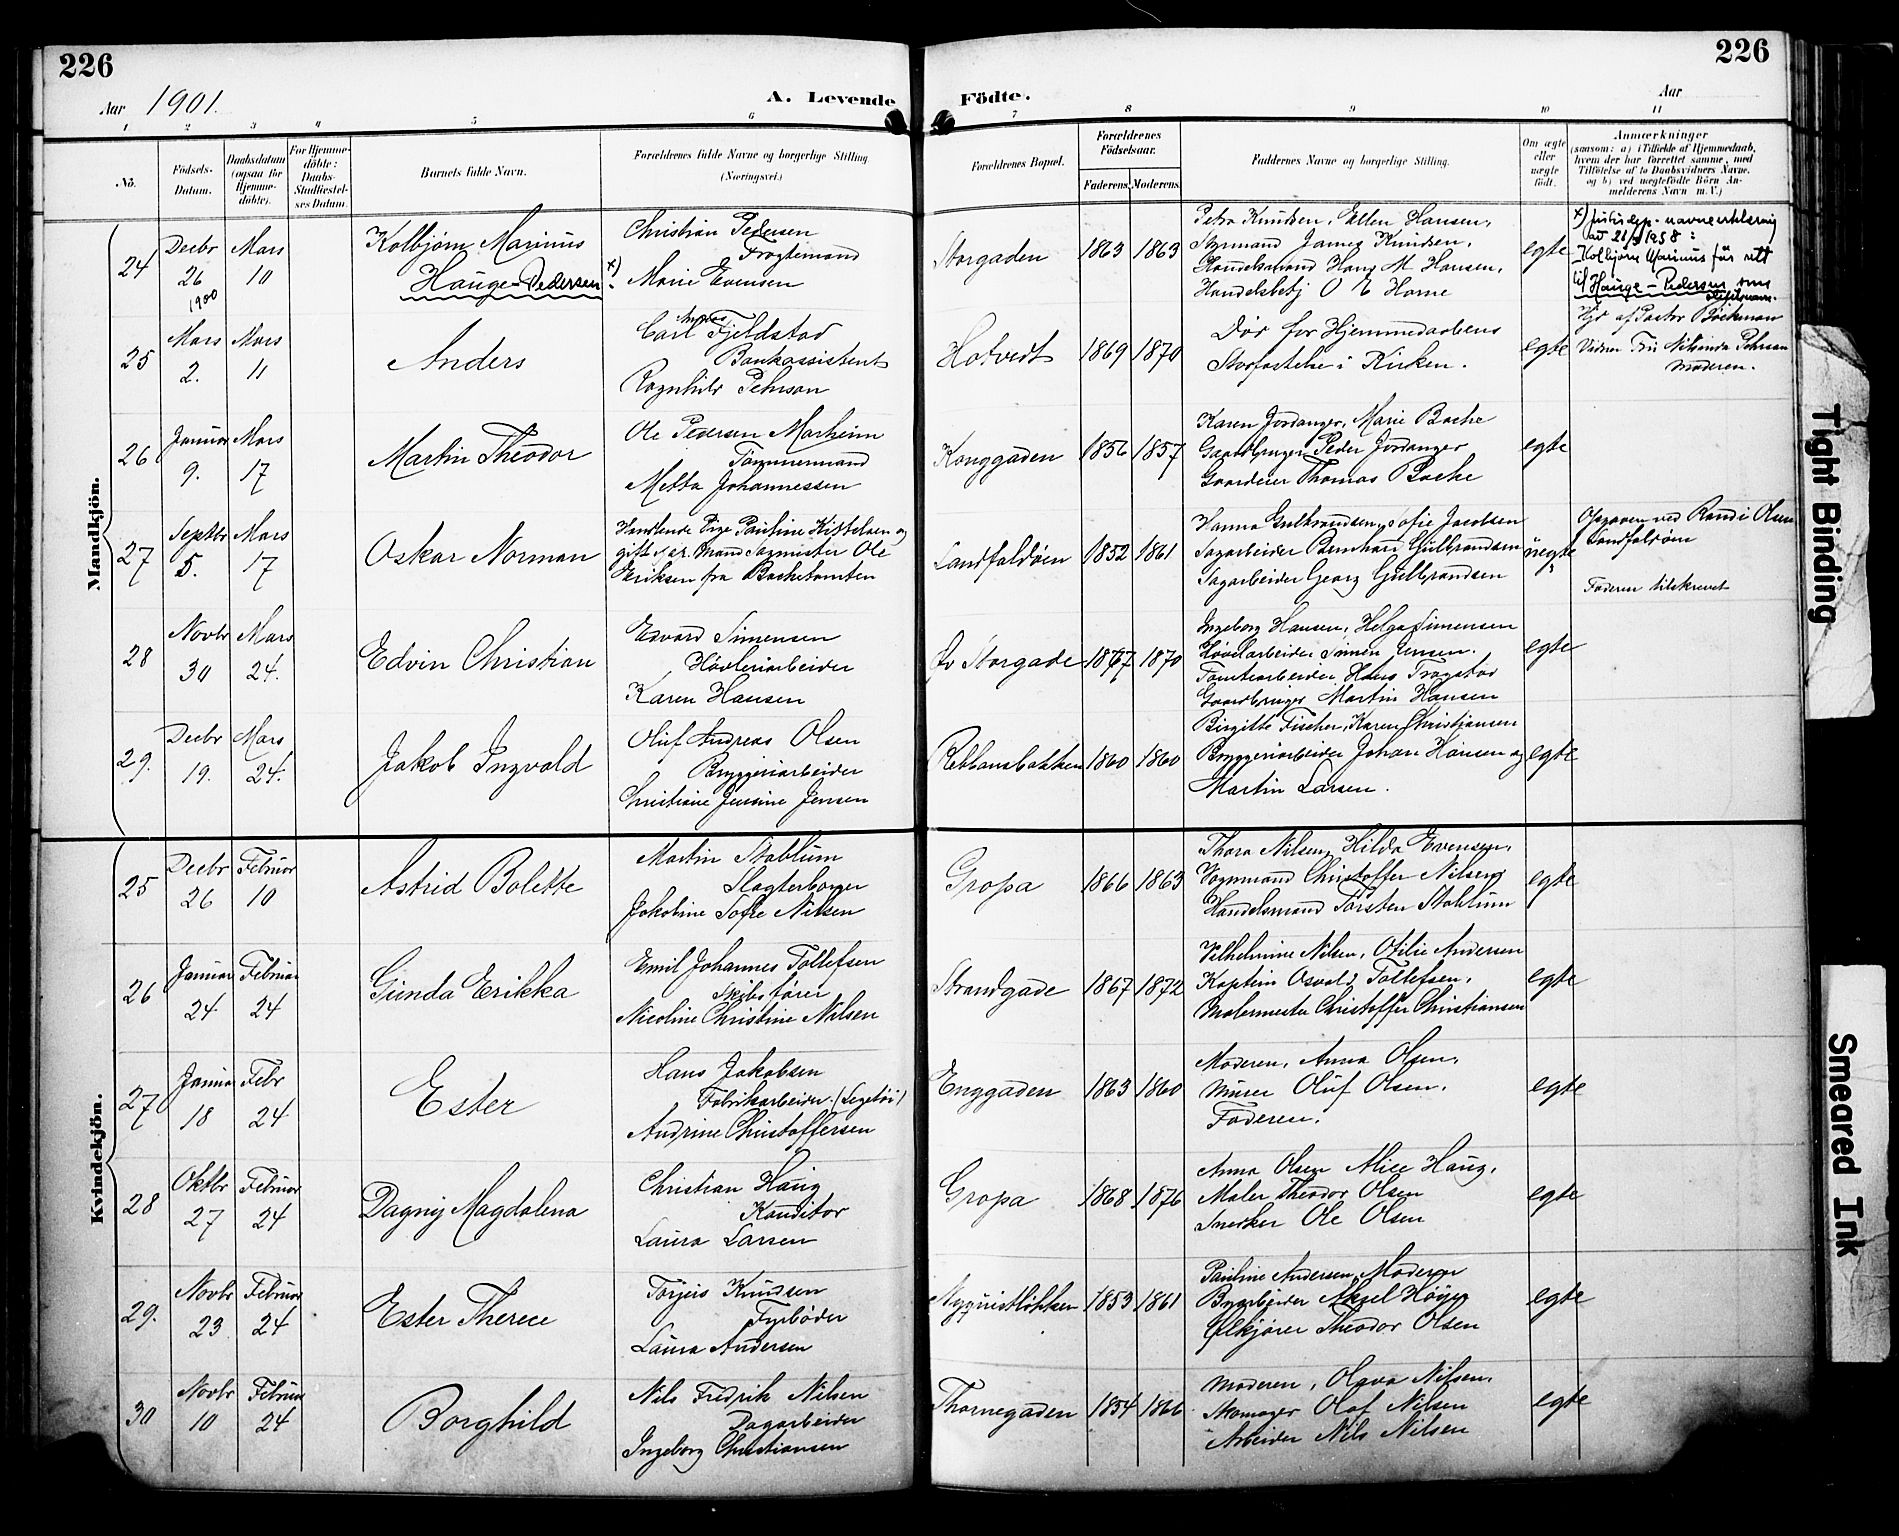 226
226
Aar 1901.
A. Levende Födte.
Aar
1 2 3 4 5 6 7 8 9 10 11
No.
Födsels-Datum.
Daabsdatum (ogsaa for Hjemme-döbte).
For Hjemme-döbte: Daabs-Stadfæstel-ses Datum.
Barnets fulde Navn.
Forældrenes fulde Navne og borgerlige Stilling (Næringsvei.)
Forældrenes Bopæl.
Forældrenes Födselsaar.
Faderens. Moderens.
Faddernes Navne og borgerlige Stilling.
Om ægte eller uægte födt.
Anmærkninger
(saasom: a) i Tilfælde af Hjemmedaab, hvem der har forrettet samme, med Tilföielse af to Daabsvidners Navne. og b) ved uægtefödte Börn An-melderens Navn m. V.)
Mandkjön.
24
Decbr 26 1900
Mars 10
Kolbjørn Marinus
Hauge-Pedersen x)
Christian Pedersen
Fragtemand
Marie Evensen
Storgaden
1863 1863
Petra Knudsen, Ellen Hansen,
Styrmand James Knudsen,
Handelsmand Hans M Hansen,
Handelsbetj O E Horne
egte
x) Justisdep. navneerklæring
av 21/3 1958:
Kolbjørn Marinus får rett
til Hauge-Pedersen som
slektsnavn.
25
Mars 2.
Mars 11
Anders
Carl Fjeldstad
Bankassistent
Ragnhild Pehrson
Hotvedt
1869 1870
Dør før Hjemmedaabens
Stadfæstelse i Kirken.
egte
Hjd af Pastor Bøckman
Vidner Fru Nilsinda Pehrson
Moderen.
26
Januar 9.
Mars 17
Martin Theodor
Ole Pedersen Markeim
Tømmermand
Metta Johannessen
Konggaden
1856 1857
Karen Jordanger, Marie Bache
Gaardbruger Peder Jordanger
Gaardeier Thomas Bache
egte
27
Septbr 5.
Mars 17
Oskar Norman
Handlende Pige Pauline Kittelsen og
gift Mand Sagmester Ole
Eriksen fra Bachetomten
Landfaldøen
1852 1861
Hanna Gulbrandsen, Sofie Jacobsen
Sagarbeider Bernhard Gulbrandsen
Sagarbeider Georg Gulbrandsen
uegte
Opgaven ved Randi Olsen
Landfaldøen
Faderen tilskrevet
28
Novbr 30
Mars 24.
Edvin Christian
Edvard Simensen
Høvleriarbeider
Karen Hansen
Øv Storgade
1867 1870
Ingeborg Hansen, Helga Simensen
Høvelarbeider Simen Jensen.
Tomtearbeider Hans Trøgstad
Gaardbruger Martin Hansen
egte
29.
Decbr 19.
Mars 24.
Jakob Ingvald
Oluf Andreas Olsen
Bryggeriarbeider
Christiane Jensine Jensen
Rebbansbakken
1860 1860
Birgitte Fischer, Karen Christiansen
Bryggeriarbeider Johan Hansen og
Martin Larsen.
egte
Kvindekjön.
25
Decbr 26
Februar 10
Astrid Bolette
Martin Stablum
Slagterborger
Jakobine Sofie Nilsen
Gropa
1866 1863
Thora Nilsen, Hilda Evensen,
Vognmand Christoffer Nilsen,
Handelsmand Torsten Stablum
egte
26
Januar 24
Februar 24
Gunda Erikka
Emil Johannes Tollefsen
Skibsfører
Nicoline Christine Nilsen
Strandgade
1867 1872
Vilhelmine Nilsen, Otilie Andersen
Kaptein Osvald Tollefsen,
Malermester Christoffer Christiansen
egte
27
Januar 18
Febr 24
Ester
Hans Jakobsen
Fabrikarbeider. (Legetøi)
Andrine Christoffersen
Enggaden
1863 1860
Moderen, Anna Olsen,
Murer Oluf Olsen,
Faderen.
egte
28
Oktbr 27
Februar 24
Dagny Magdalena
Christian Haug
Konditor
Laura Larsen
Gropa
1868 1876
Anna Olsen Alice Haug,
Maler Theodor Olsen
Snedker Ole Olsen
egte
29.
Novbr 23
Februar 24
Ester Therece
Torjeis Knudsen
Fyrbøder
Laura Andersen
Nyquistløkken
1853 1861
Pauline Andersen, Moderen
Byarbeider Aksel Høyer
Ølkjører Theodor Olsen
egte
30
Novbr 10
Februar 24
Borghild
Nils Fredrik Nilsen
Dagarbeider
Ingeborg Christiansen
Thornegaden
1854 1866
Moderen, Olava Nilsen,
Skomager Olaf Nilsen
Arbeider Nils Nilsen
egte
Tight Binding
Smeared Ink